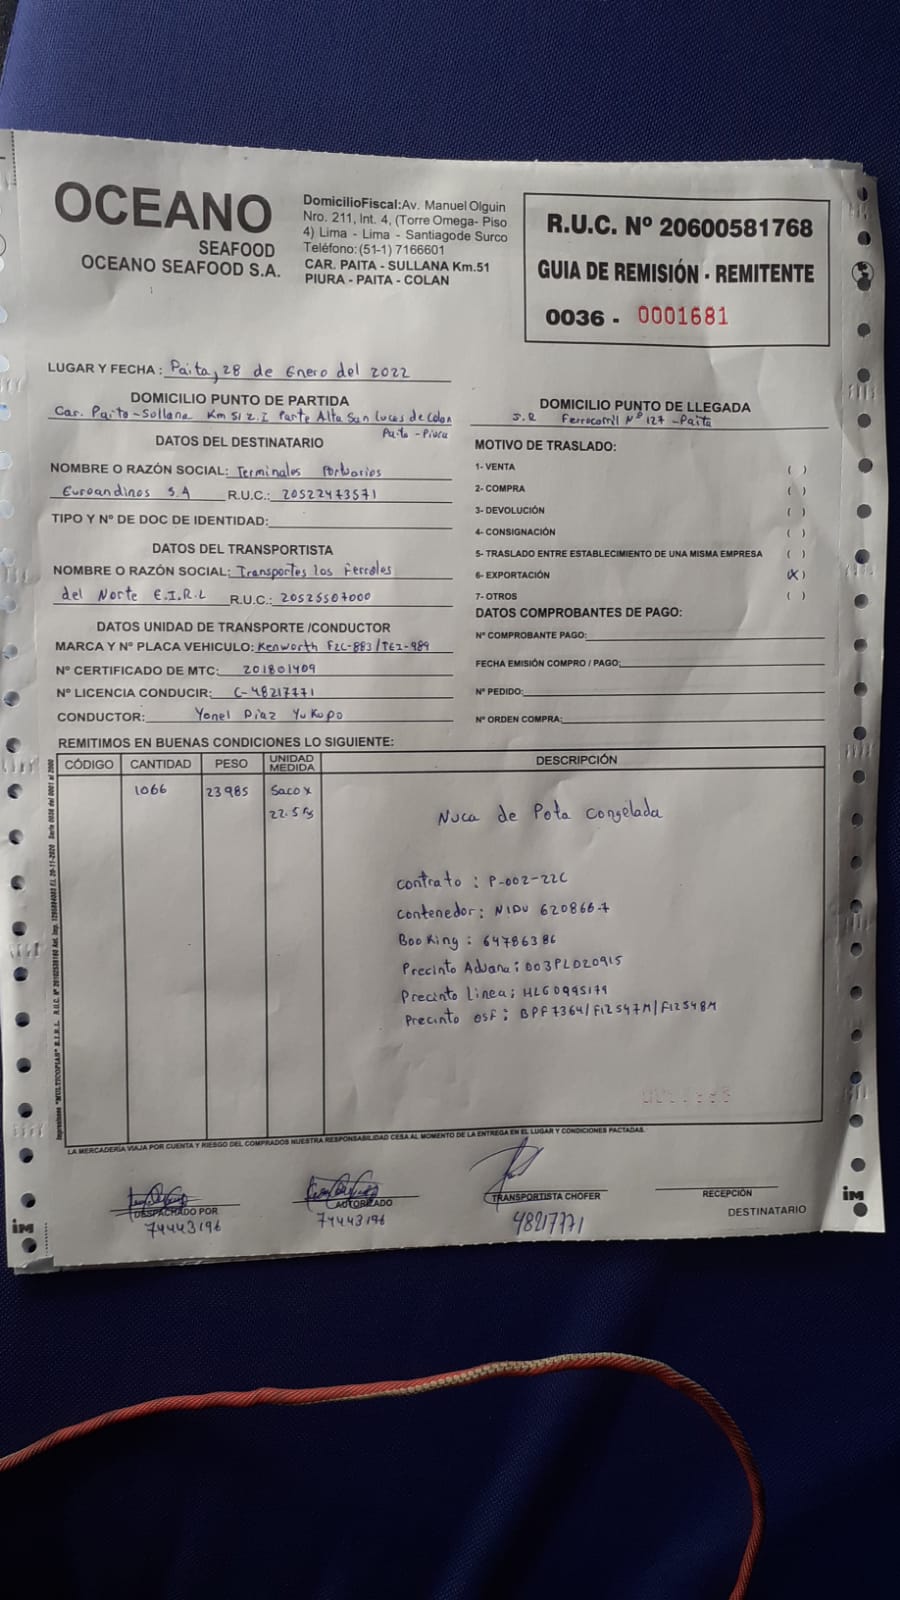 OCEANO
SEAFOOD
OCEANO SEAFOOD S.A.
DomicilioFiscal:Av. Manuel Olguin
Nro. 211, Int. 4, (Torre Omega- Piso
4) Lima - Lima - Santiagode Surco
Teléfono:(51-1) 7166601
CAR. PAITA - SULLANA Km.51
PIURA - PAITA - COLAN
R.U.C. Nº 20600581768
GUIA DE REMISIÓN - REMITENTE
0036 - 0001681
LUGAR Y FECHA : Paita, 28 de Enero del 2022
DOMICILIO PUNTO DE PARTIDA
Car. Paita-Sullana Km 51 Z.I Parte Alta San Lucas de Colan
Paita - Piura
DATOS DEL DESTINATARIO
NOMBRE O RAZÓN SOCIAL: Terminales Portuarios
Euroandinos S.A R.U.C.: 20522473571
TIPO Y Nº DE DOC DE IDENTIDAD:
DATOS DEL TRANSPORTISTA
NOMBRE O RAZÓN SOCIAL: Transportes los Ferroles
del Norte E.I.R.L R.U.C.: 20525507000
DATOS UNIDAD DE TRANSPORTE /CONDUCTOR
MARCA Y Nº PLACA VEHICULO: Kenworth F2C-883/TEZ-989
Nº CERTIFICADO DE MTC: 201801409
Nº LICENCIA CONDUCIR: C-48217771
CONDUCTOR: Yonel Diaz
DOMICILIO PUNTO DE LLEGADA
Ferrocarril Nº 127 -Paita
MOTIVO DE TRASLADO:
1- VENTA ( )
2- COMPRA ( )
3- DEVOLUCIÓN ( )
4- CONSIGNACIÓN ( )
5- TRASLADO ENTRE ESTABLECIMIENTO DE UNA MISMA EMPRESA ( )
6- EXPORTACIÓN (X)
7- OTROS ( )
DATOS COMPROBANTES DE PAGO:
Nº COMPROBANTE PAGO:
FECHA EMISIÓN COMPRO / PAGO:
Nº PEDIDO:
Nº ORDEN COMPRA:
REMITIMOS EN BUENAS CONDICIONES LO SIGUIENTE:
CÓDIGO CANTIDAD PESO UNIDAD MEDIDA DESCRIPCIÓN
1066 23985 Saco x
22.5 Kg
Nuca de Pota Congelada
Contrato : P-002-22C
Contenedor: NIDU 620866-7
Booking : 64786386
Precinto Aduana: 003PLD20915
Precinto Linea: HLG0995179
Precinto OSF: BPF7364/F12547M/F12548M
LA MERCADERÍA VIAJA POR CUENTA Y RIESGO DEL COMPRADOS NUESTRA RESPONSABILIDAD CESA AL MOMENTO DE LA ENTREGA EN EL LUGAR Y CONDICIONES PACTADAS.
DESPACHADO POR
74443196
AUTORIZADO
74443196
TRANSPORTISTA CHOFER
48217771
RECEPCIÓN
DESTINATARIO
im
im